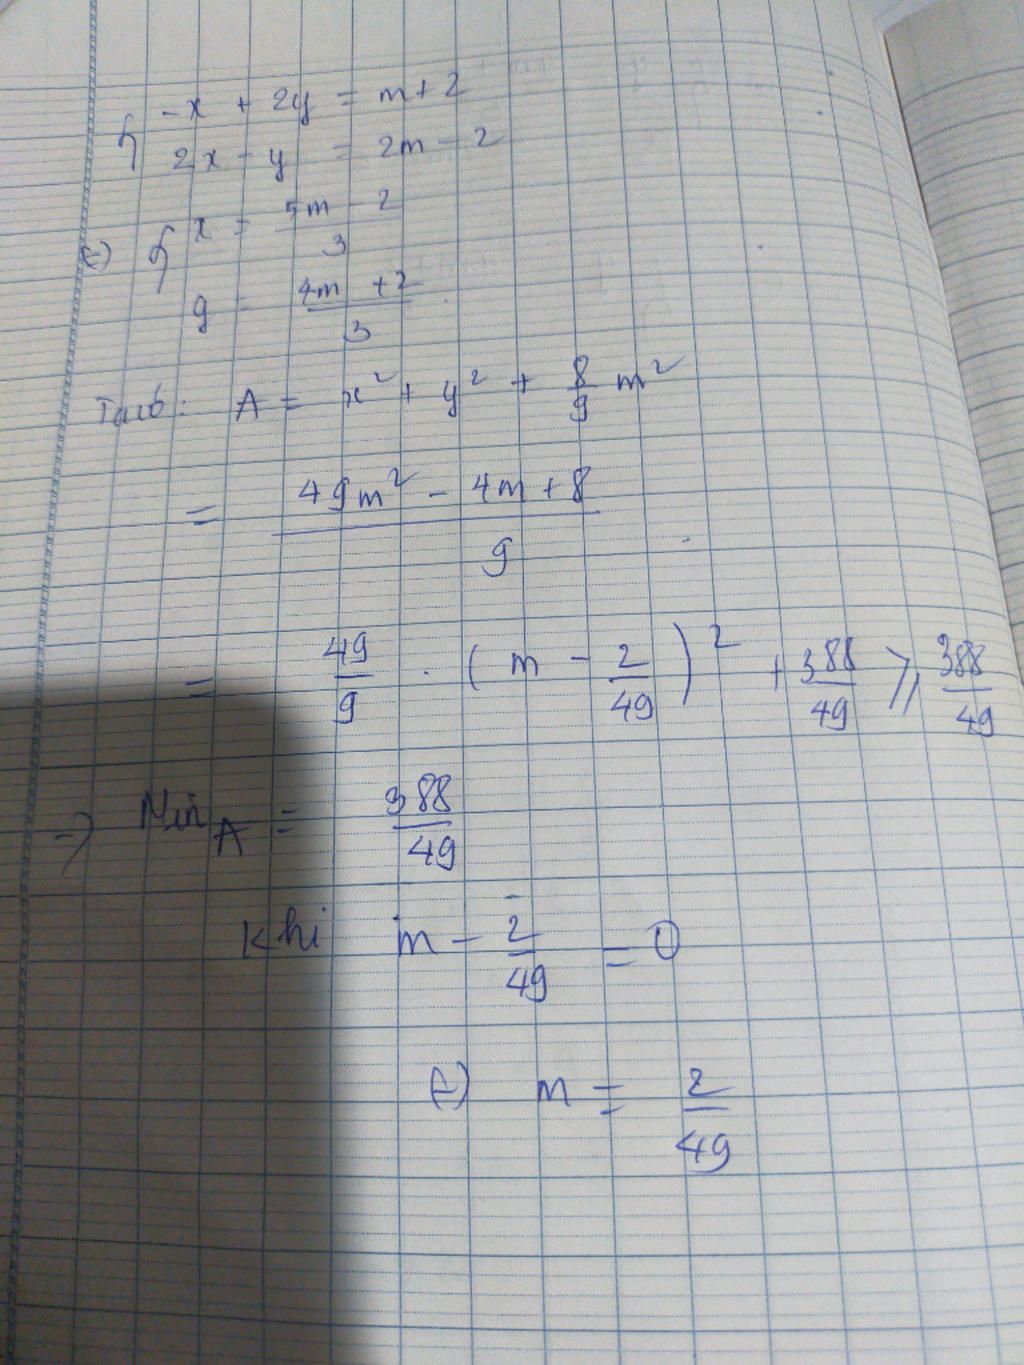 { -x + 2y = m+2
2x - y = 2m - 2
(=) { x = (5m - 2)/3
y = (4m + 2)/3
Ta có: A = x² + y² + 8/9 m²
= (49m² - 4m + 8)/9
= 49/9 . (m - 2/49)² + 388/49 ⩾ 388/49
=) Min A = 388/49
Khi m - 2/49 = 0
(=) m = 2/49